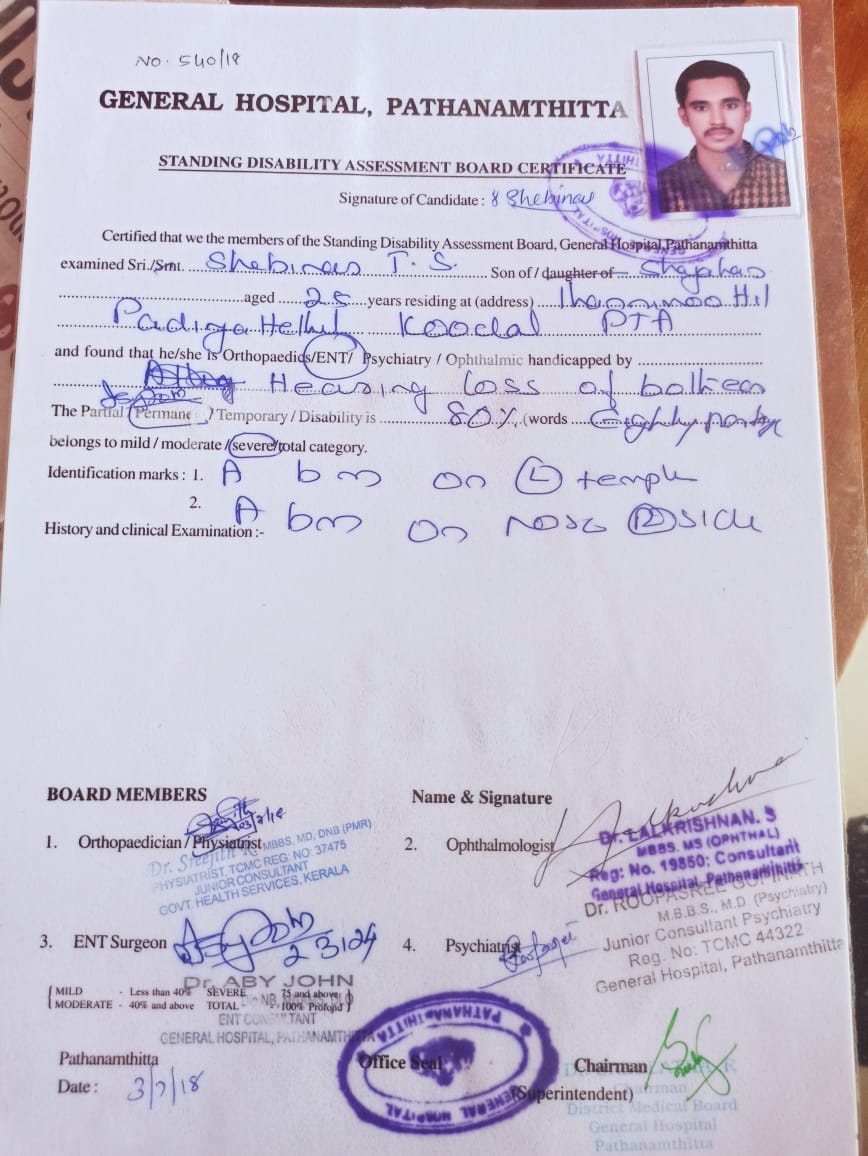 NO. 540/18
GENERAL HOSPITAL, PATHANAMTHITTA
STANDING DISABILITY ASSESSMENT BOARD CERTIFICATE
Signature of Candidate : Shebinas
Certified that we the members of the Standing Disability Assessment Board, General Hospital, Pathanamthitta
examined Sri./Smt. Shebinas T. S. Son of / daughter of Shajahan
aged 25 years residing at (address)
Koodal PTA
and found that he/she is Orthopaedics/ENT/ Psychiatry / Ophthalmic handicapped by
Hearing loss of both ear
The Partial / Permanent / Temporary / Disability is 80% (words Eighty
belongs to mild / moderate / severe/total category.
Identification marks : 1. A bm on (L) temple
2. A bm on nose (R) side
History and clinical Examination :-
BOARD MEMBERS
Name & Signature
1. Orthopaedician / Physiatrist
MBBS, MD, DNB (PMR)
PHYSIATRIST, TCMC REG: NO: 37475
JUNIOR CONSULTANT
GOVT. HEALTH SERVICES, KERALA
2. Ophthalmologist
Dr. LALKRISHNAN. S
MBBS. MS (OPHTHAL)
Reg: No. 19850: Consultant
General Hospital, Pathanamthitta
3. ENT Surgeon
23124
Dr. ABY JOHN
ENT CONSULTANT
GENERAL HOSPITAL, PATHANAMTHITTA
4. Psychiatrist
Dr. ROOPASREE GOPINATH
M.B.B.S., M.D (Psychiatry)
Junior Consultant Psychiatry
Reg. No: TCMC 44322
General Hospital, Pathanamthitta
MILD - Less than 40% SEVERE 75 and above
MODERATE - 40% and above TOTAL - 100% Profound
Pathanamthitta
Date : 3/7/18
Office Seal
GENERAL HOSPITAL PATHANAMTHITTA
Chairman
(Superintendent)
Chairman
District Medical Board
General Hospital
Pathanamthitta